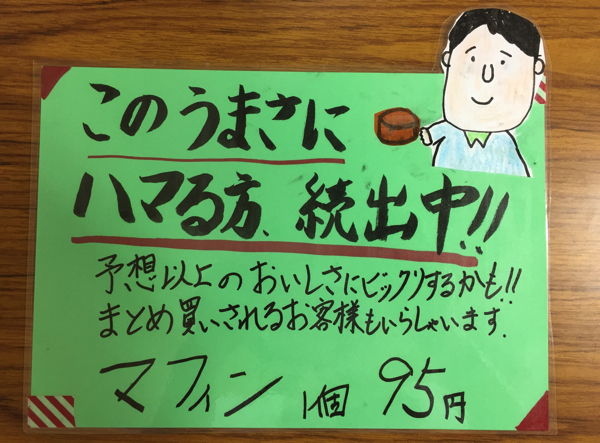 このうまさに
ハマる方、続出中!!
予想以上のおいしさにビックリするかも!!
まとめ買いされるお客様もいらしゃいます.
マフィン 1個 95円